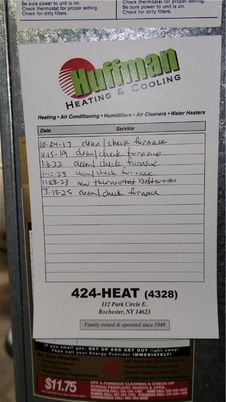 Be sure power to unit is on.
Check thermostat for proper setting.
Check for dirty filters.
Check thermostat for proper setting.
Be sure power to unit is on.
Check for dirty filters.
Huffman
HEATING & COOLING
Heating • Air Conditioning • Humidifiers • Air Cleaners • Water Heaters
Date Service
10-24-17 clean/check furnace
clean/check furnace
clean/check furnace
clean/check furnace
new thermostat batteries
3-15-25 clean/check furnace
424-HEAT (4328)
112 Park Circle E.
Rochester, NY 14623
Family owned & operated since 1948
If you smell gas, GET UP AND GET OUT right away!
Then call your Energy Provider IMMEDIATELY!
$11.75
OFF A FURNACE CLEANING & CHECK-UP
DURING FEBRUARY, MARCH & APRIL.